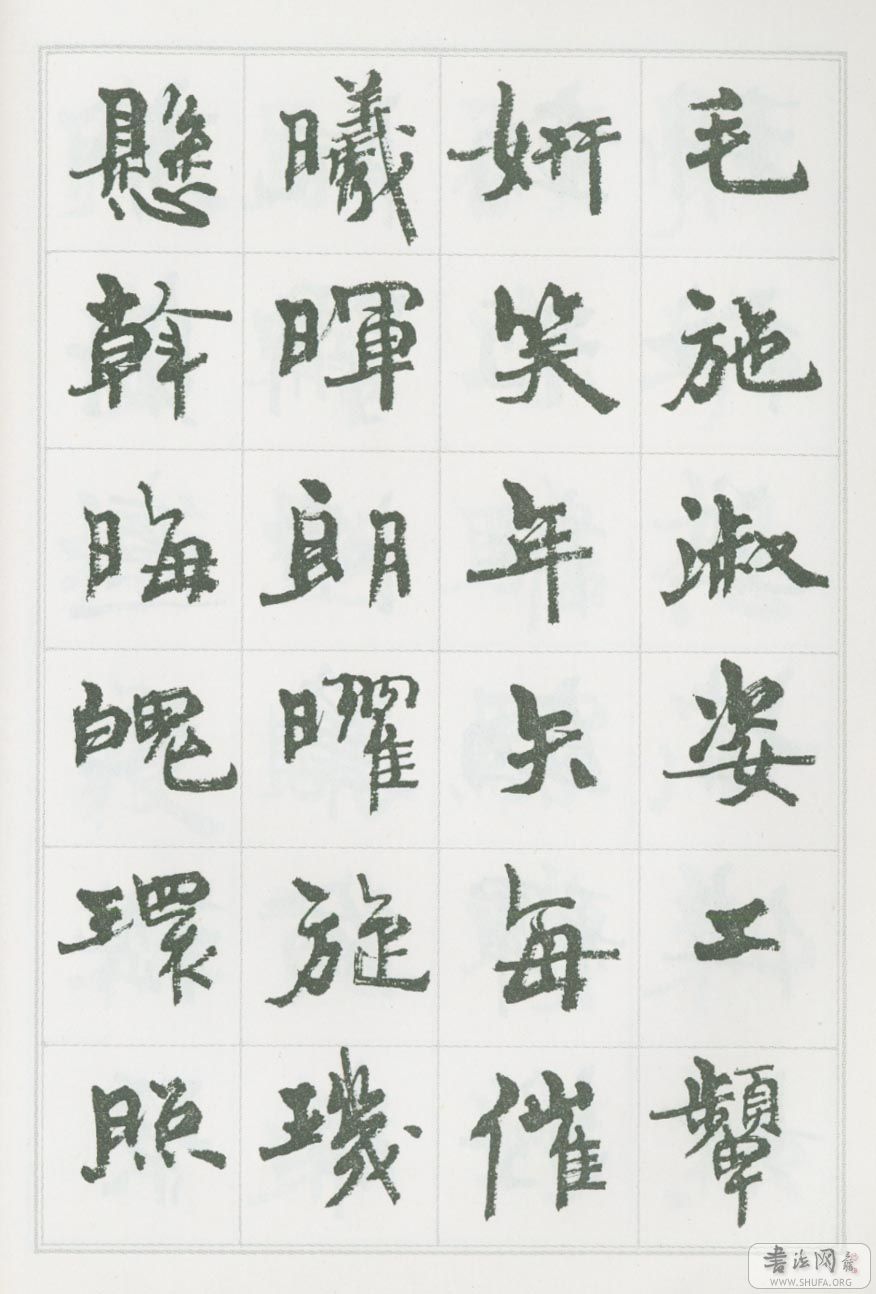 毛施淑姿工顰
妍笑年矢每催
曦暉朗曜旋璣
懸斡晦魄環照
書法网
WWW.SHUFA.ORG